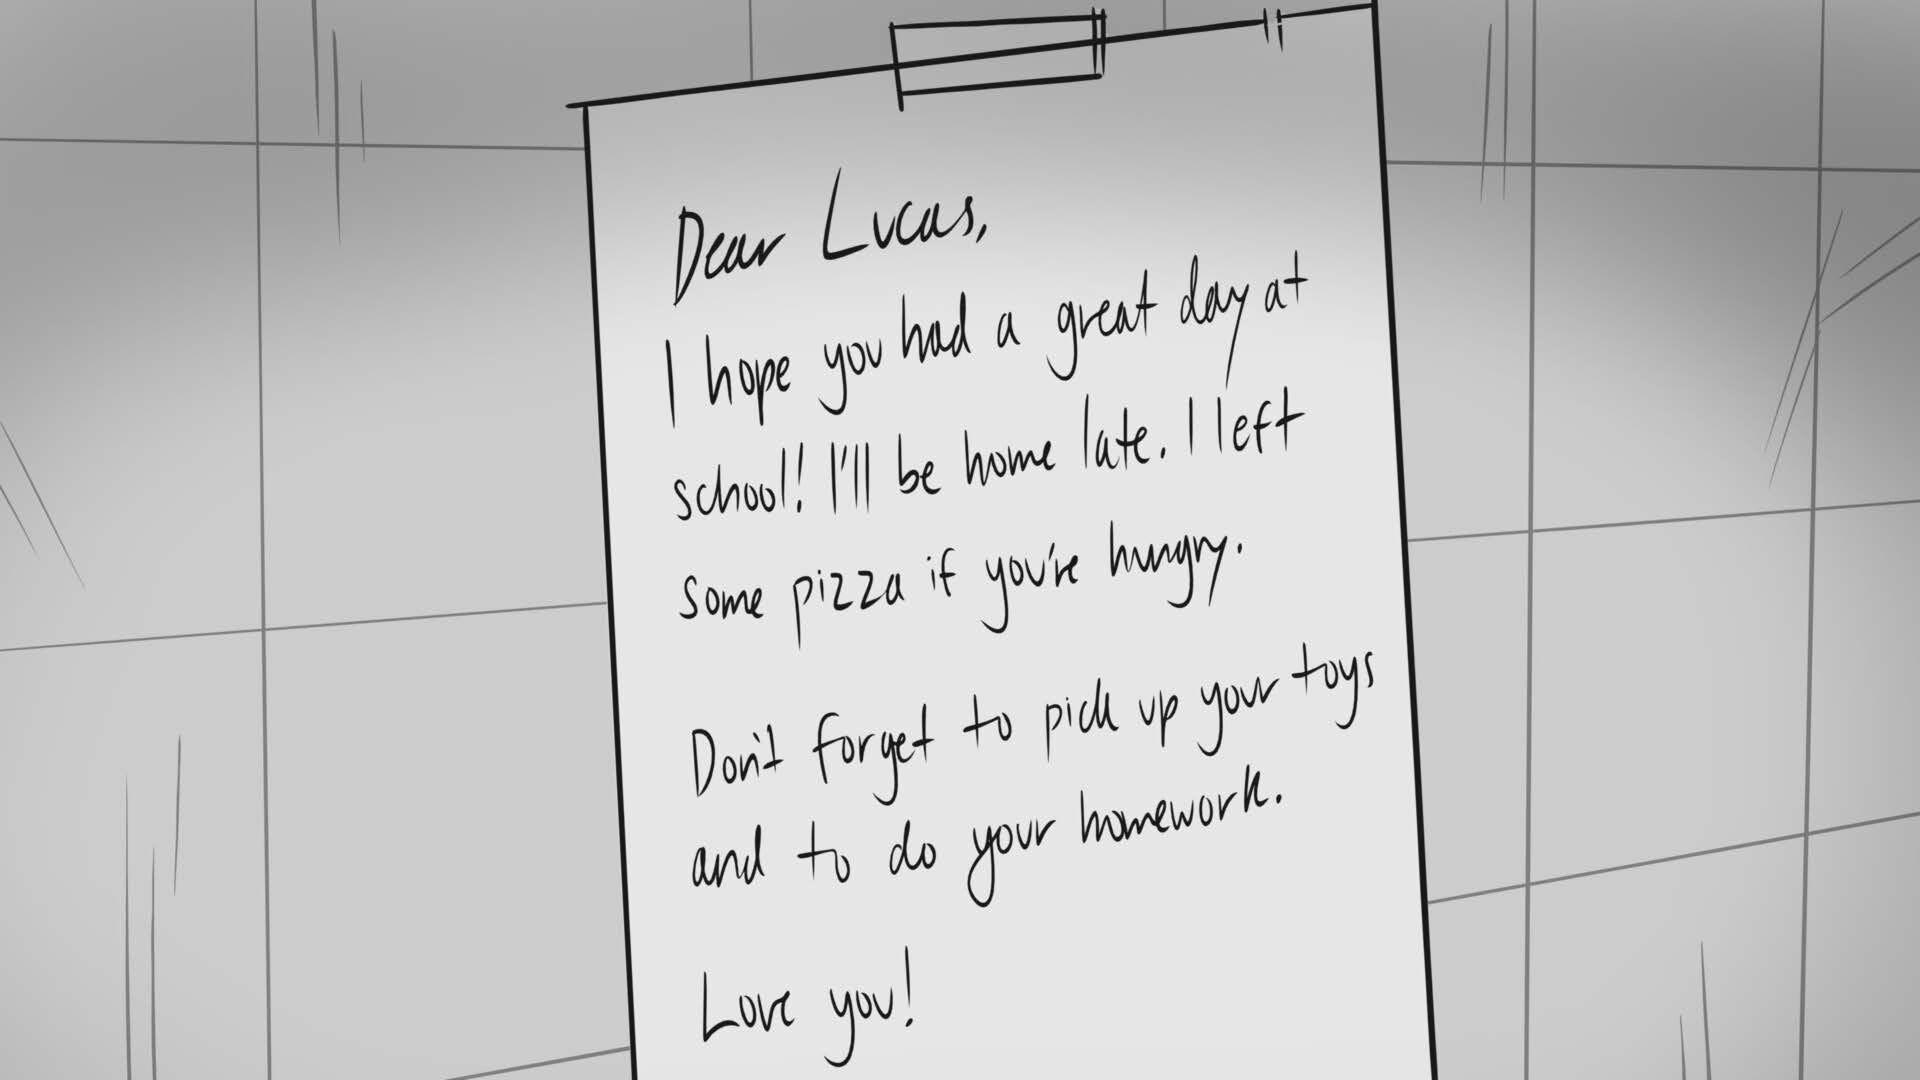 Dear Lucas,
I hope you had a great day at
school! I'll be home late. I left
some pizza if you're hungry.
Don't forget to pick up your toys
and to do your homework.
Love you!